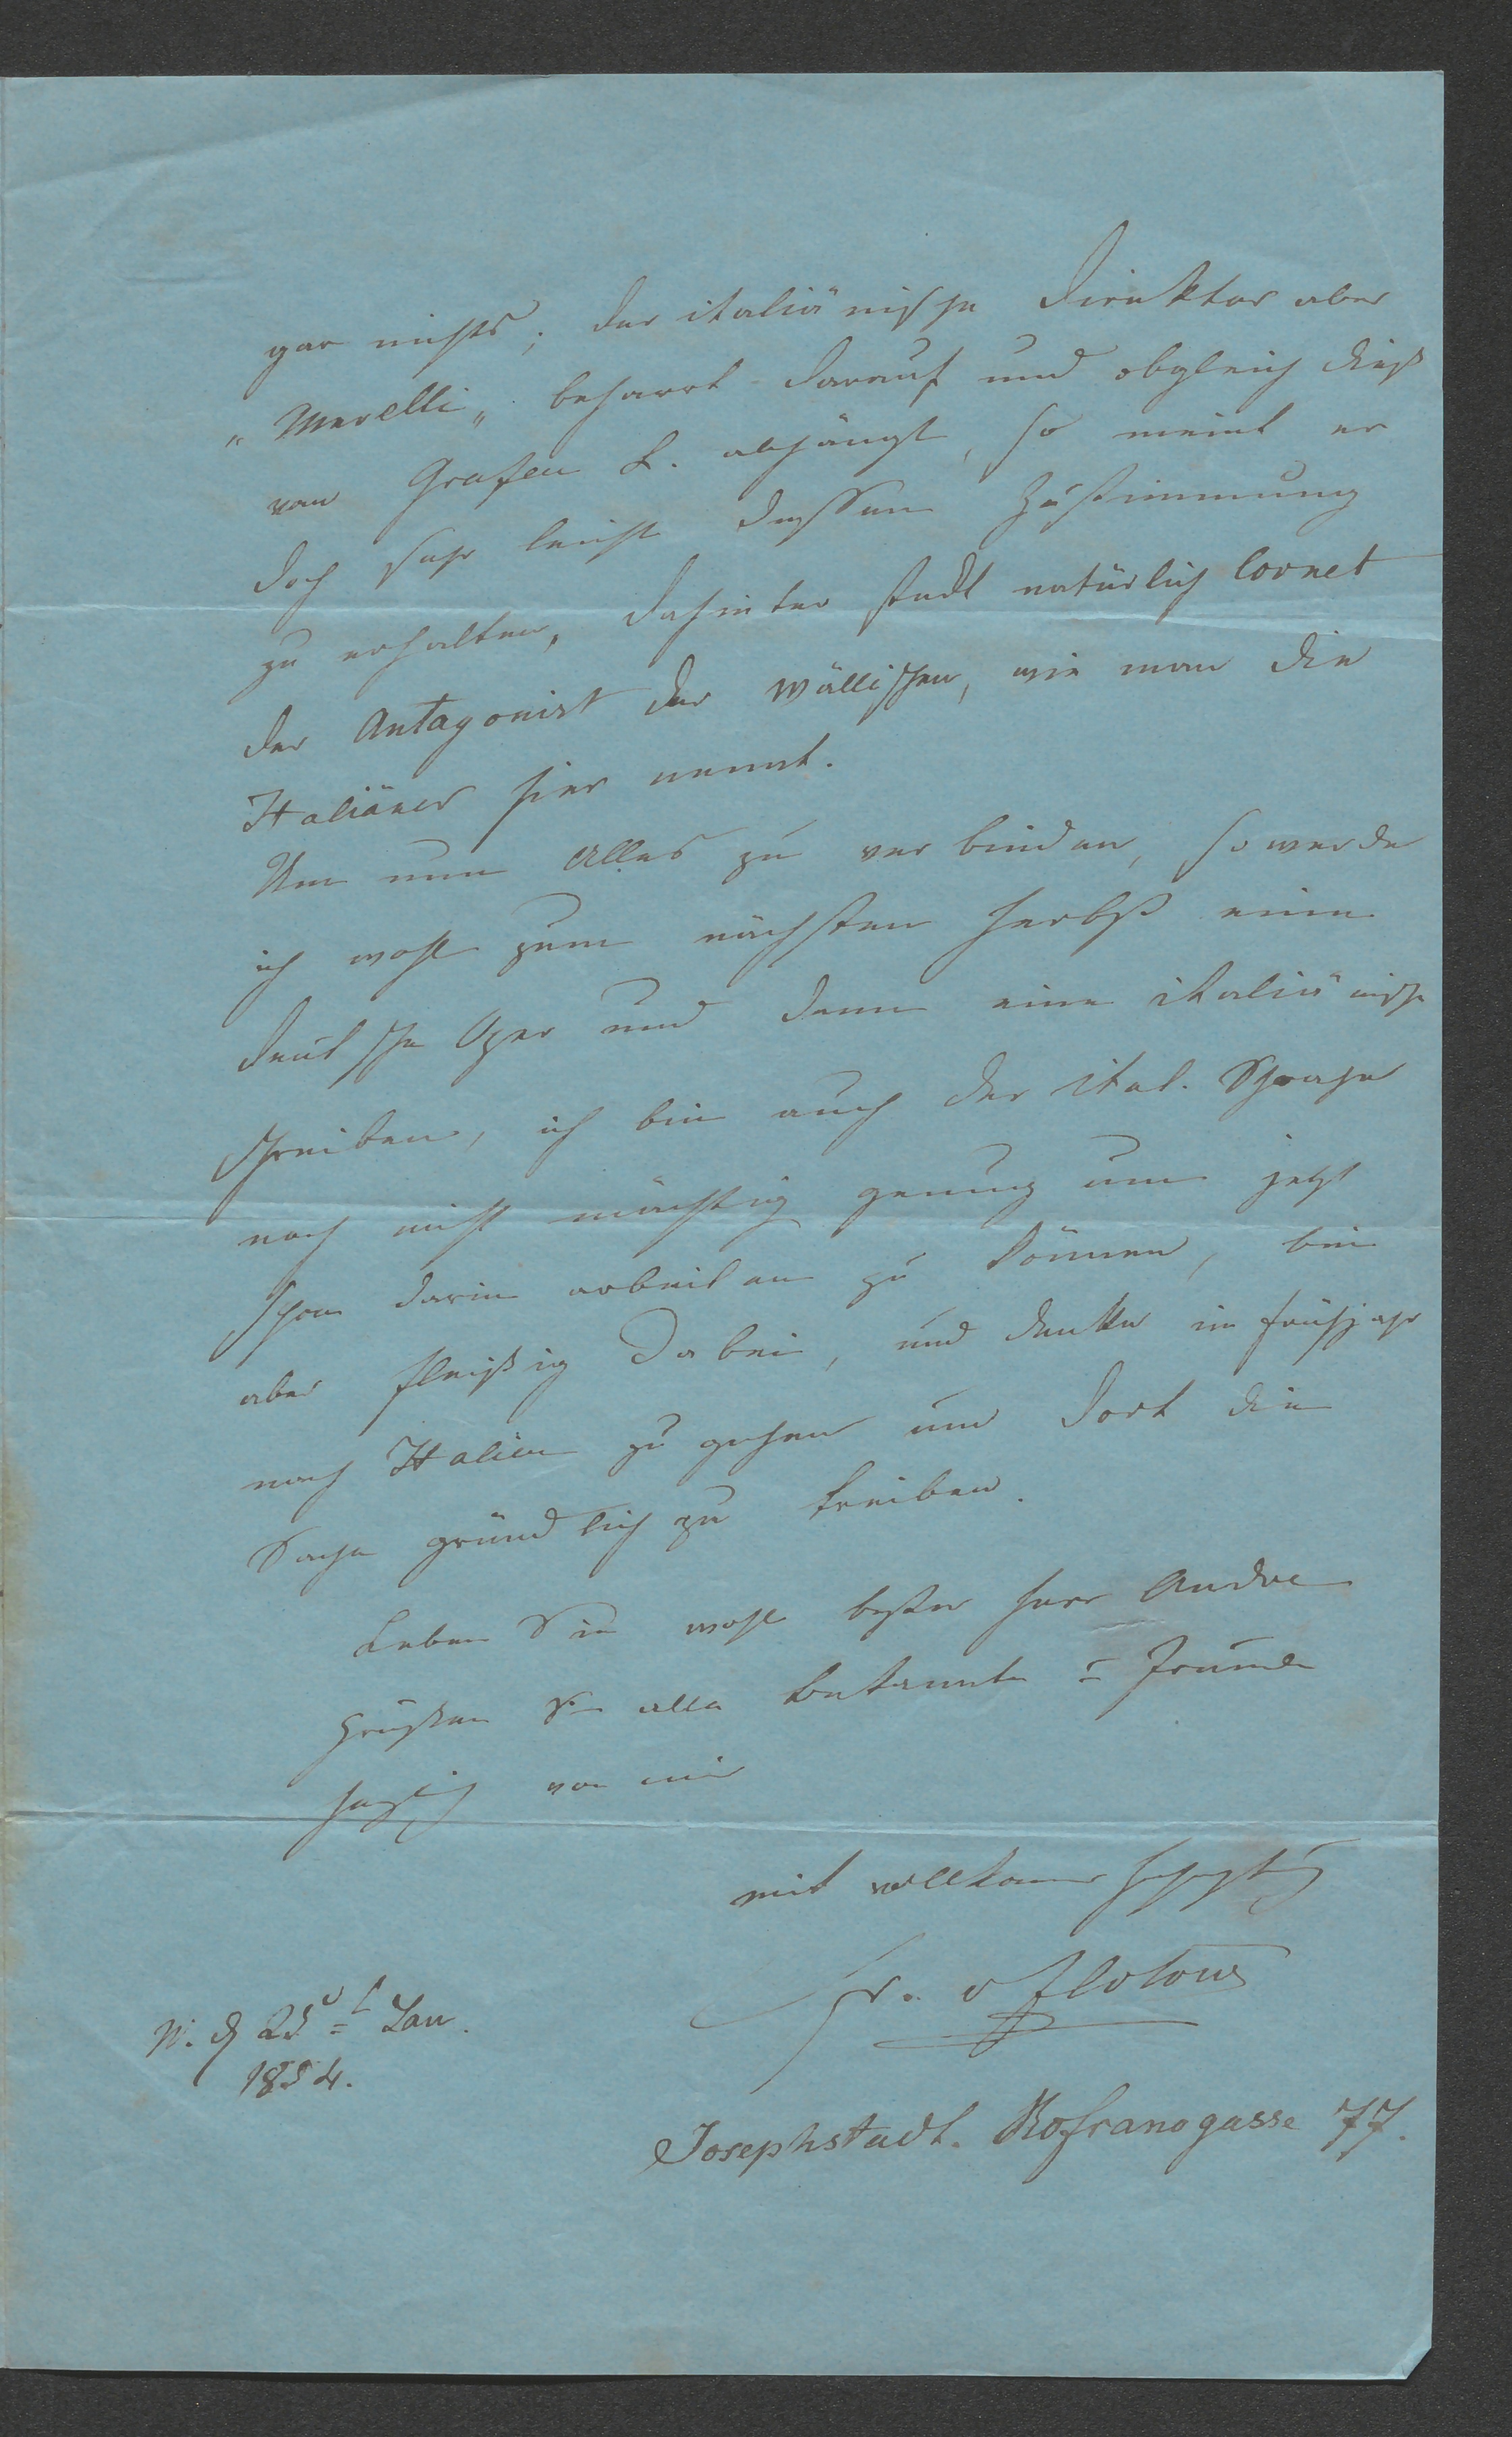 gar nichts; der italiänische Direktor aber
"Merelli" beharrt darauf und obgleich dieß
vom Grafen L. abhängt, so meint er
doch sehr leicht dessen Zustimmung
zu erhalten, dahinter steckt natürlich Cornet
der Antagonist der Wällischen, wie man die
Italiäner hier nennt.
Um nun Alles zu verbinden, so werde
ich wohl zum nächsten Herbst eine
deutsche Oper und dann eine italiänische
schreiben, ich bin auch der ital. Sprache
noch nicht mächtig genung um jetzt
schon darin arbeiten zu können, bin
aber fleißig dabei, und denke im Frühjahr
nach Italien zu gehen um dort die
Sache gründlich zu treiben.
Leben Sie wohl bester Herr Andre
Grüßen Sie alle Bekannte u Freunde
herzlich von mir
mit vollkomner Hochachtung
Fr. v Flotow
W. d 25t Jan.
1854.
Josephstadt. Rofranogasse 77.